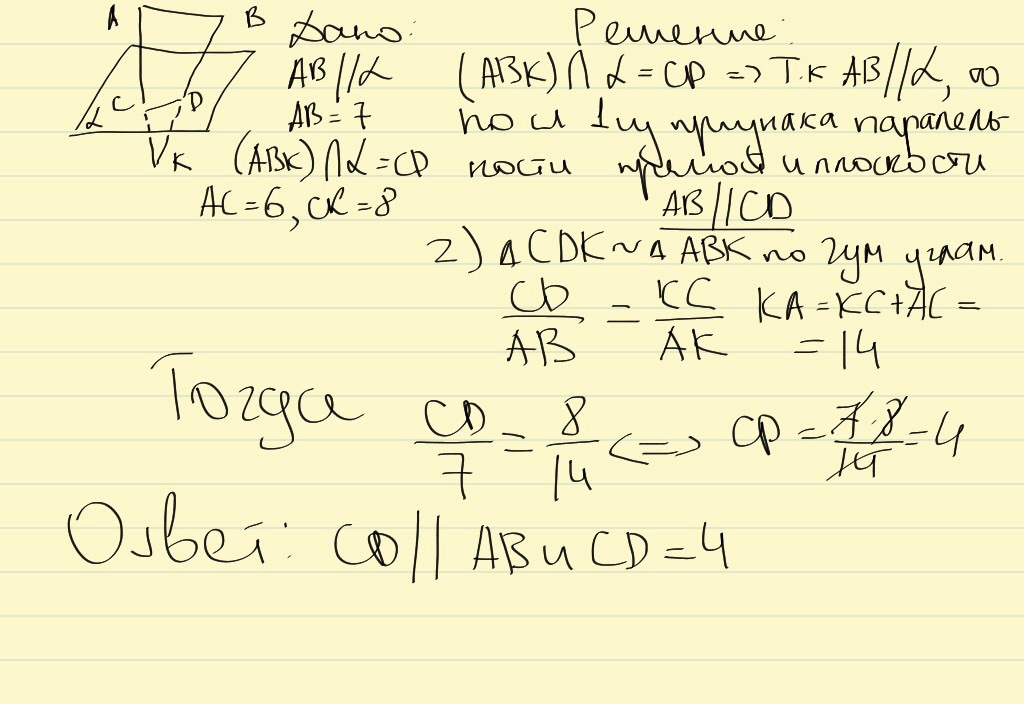 A B
C D
α
K
Дано:
AB//α
AB = 7
(ABK)⋂α = CD
AC = 6, CK = 8
Решение:
(ABK)⋂α = CD => Т.к AB//α, то
по 1му признака паралель-
ности прямой и плоскости
AB//CD
2) ΔCDK ~ Δ ABK по 2ум углам.
CD/AB = KC/AK KA = KC + AC =
= 14
Тогда CD/7 = 8/14 <=> CD = 7·8/14 = 4
Ответ: CD// AB и CD = 4